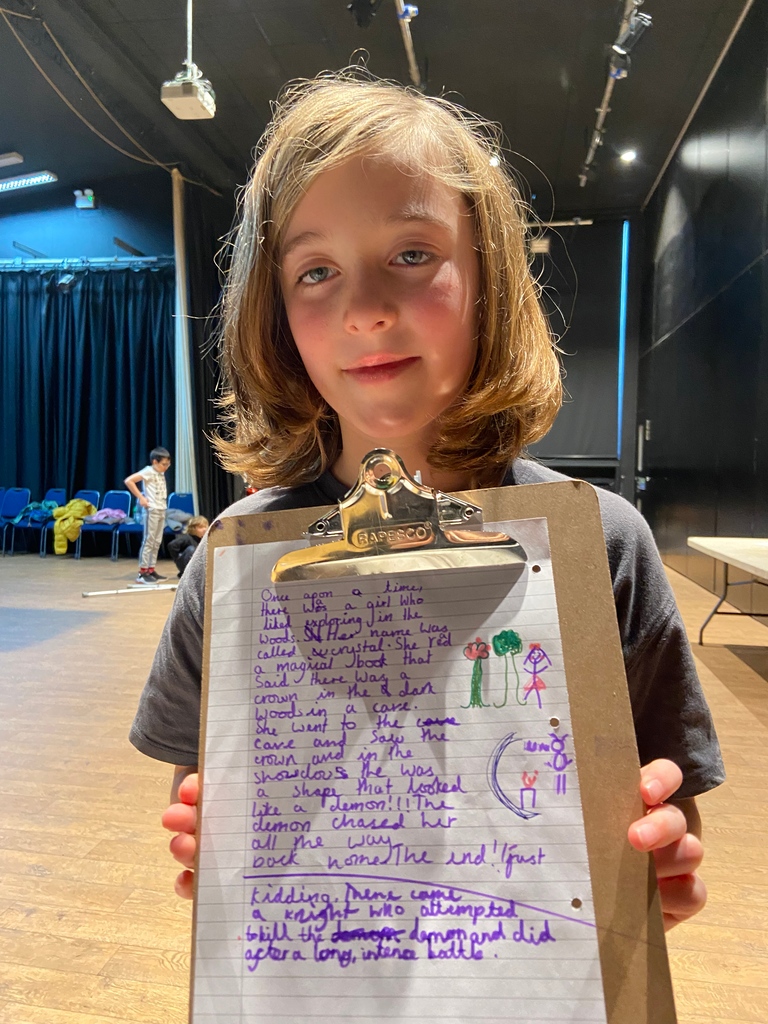 RAPESCO
Once upon a time,
there was a girl who
liked exploring in the
woods. Her name was
called crystal. She red
a magical book that
said there was a
crown in the dark
woods in a cave.
She went to the cave
cave and saw the
crown and in the
showdows the was
a shape that looked
like a demon!!! The
demon chased her
all the way
back home The end! (just
kidding, There came
a knight who attempted
to kill the demon demon and did
after a long, intense battle.